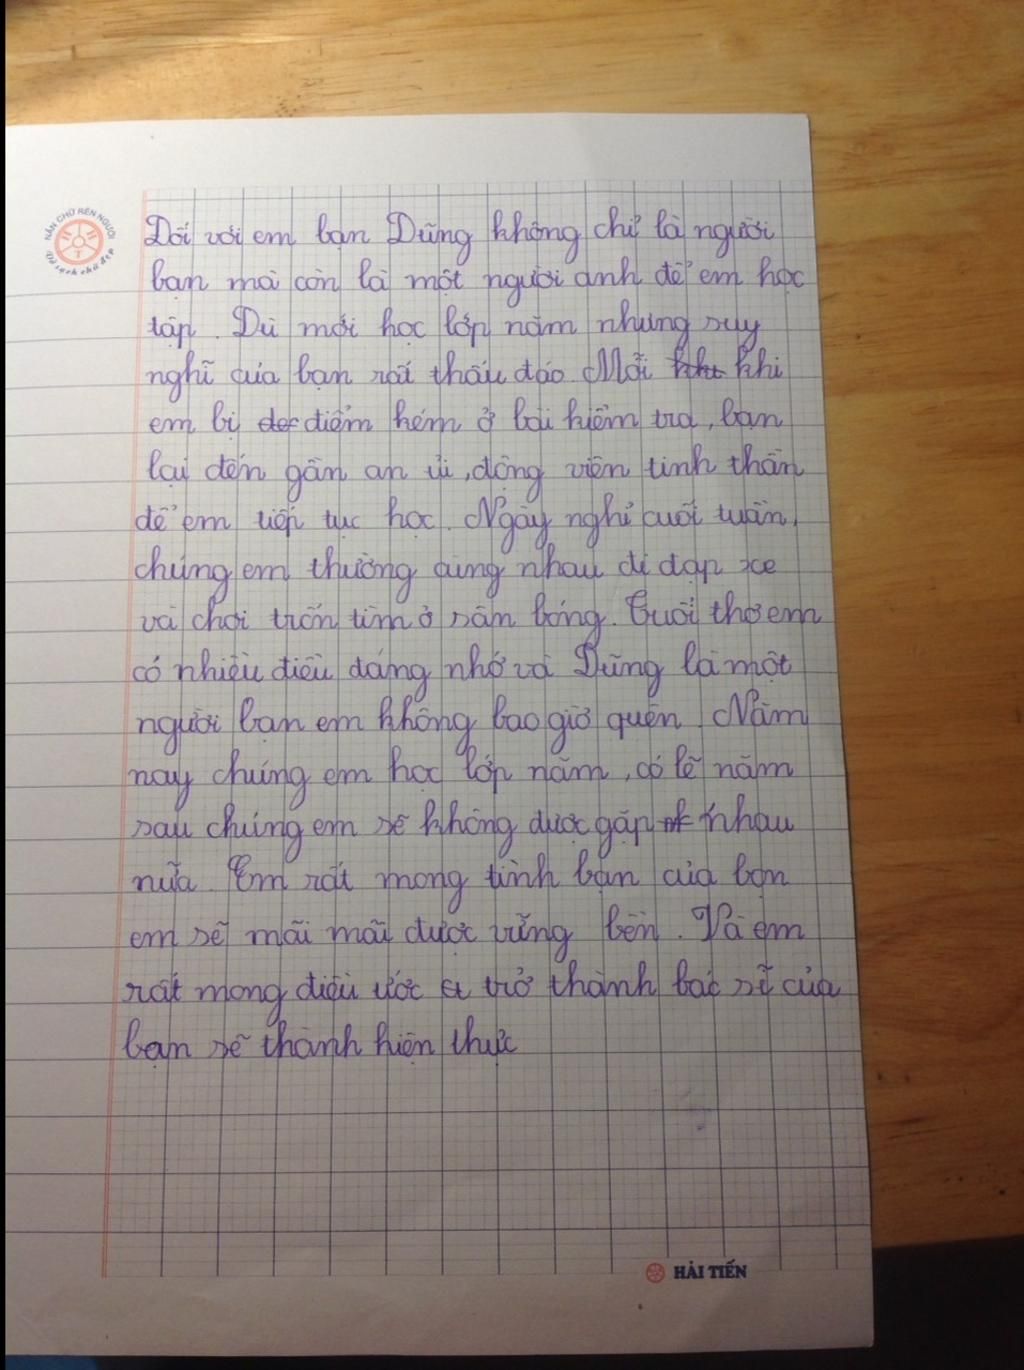 NẮN CHỮ RÈN NGƯỜI
Vở sạch chữ đẹp
Đối với em bạn Dũng không chỉ là người
bạn mà còn là một người anh để em học
tập. Dù mới học lớp năm nhưng suy
nghĩ của bạn rất thấu đáo. Mỗi khi khi
em bị điểm kém ở bài kiểm tra, bạn
lại đến gần an ủi, động viên tinh thần
để em tiếp tục học. Ngày nghỉ cuối tuần,
chúng em thường cùng nhau đi đạp xe
và chơi trốn tìm ở sân bóng. Tuổi thơ em
có nhiều điều đáng nhớ và Dũng là một
người bạn em không bao giờ quên. Năm
nay chúng em học lớp năm, có lẽ năm
sau chúng em sẽ không được gặp nhau
nữa. Em rất mong tình bạn của bọn
em sẽ mãi mãi được vững bền. Và em
rất mong điều ước trở thành bác sĩ của
bạn sẽ thành hiện thực
HẢI TIẾN